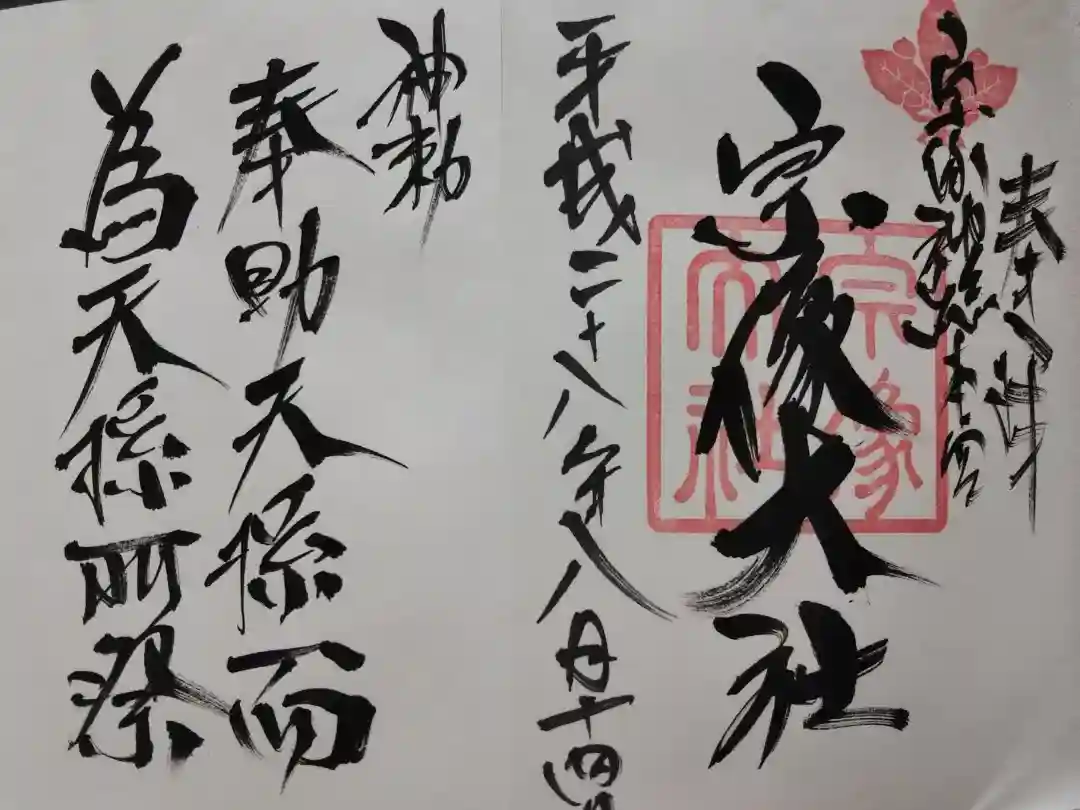 奉拝
宗像神社総本宮
宗像大社
宗像大社
平成二十八年八月十四日
神勅
奉助天孫而
為天孫所祭